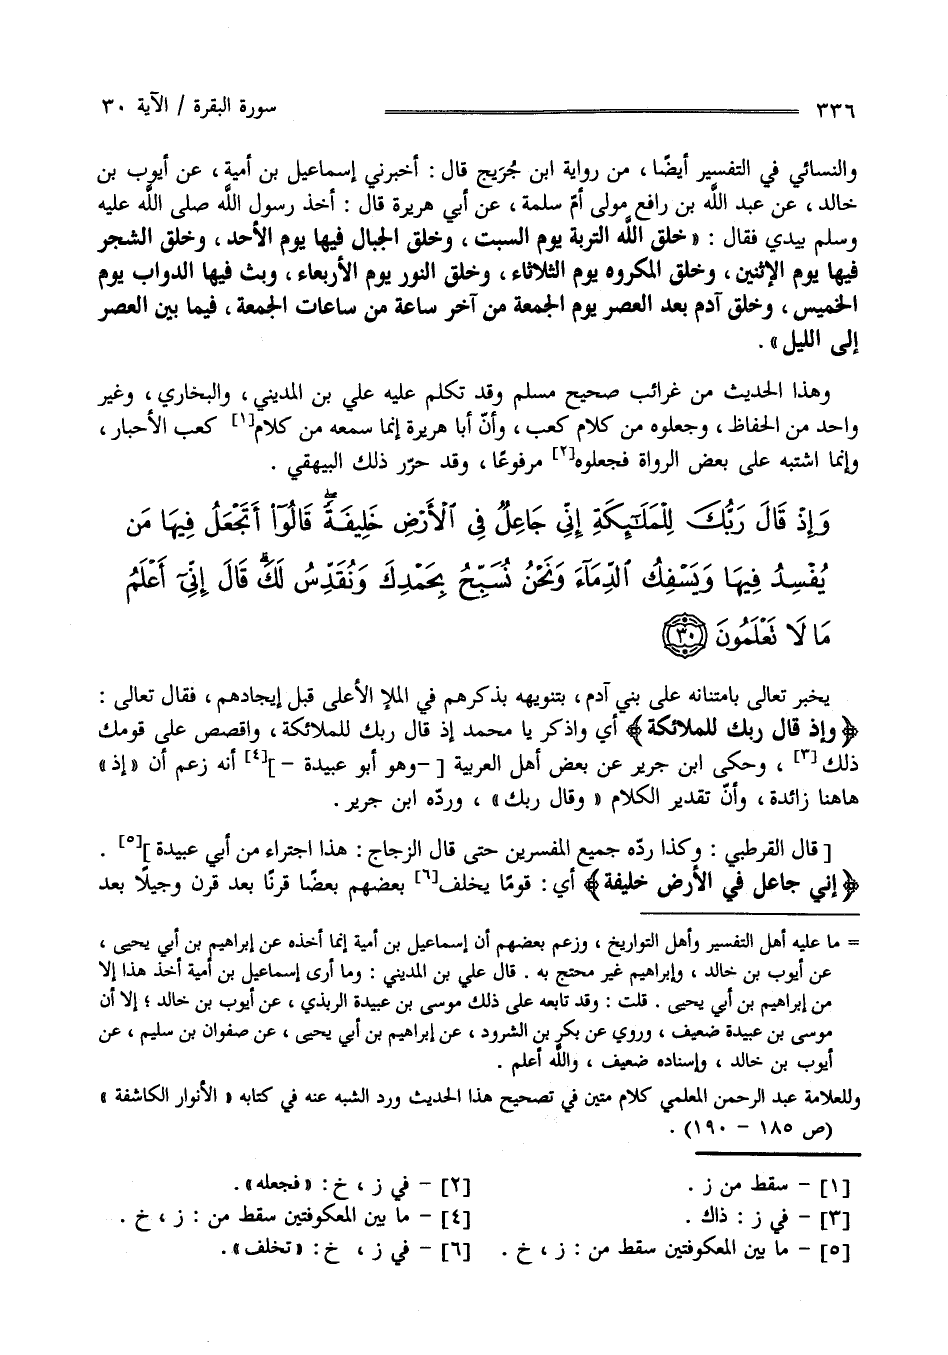 ٣٣٦ سورة البقرة / الآية ٣٠
والنسائي في التفسير أيضًا ، من رواية ابن جُرَيج قال : أخبرني إسماعيل بن أمية ، عن أيوب بن
خالد ، عن عبد الله بن رافع مولى أمّ سلمة ، عن أبي هريرة قال : أخذ رسول الله صلى الله عليه
وسلم بيدي فقال : « خلق الله التربة يوم السبت ، وخلق الجبال فيها يوم الأحد ، وخلق الشجر
فيها يوم الإثنين ، وخلق المكروه يوم الثلاثاء ، وخلق النور يوم الأربعاء ، وبث فيها الدواب يوم
الخميس ، وخلق آدم بعد العصر يوم الجمعة من آخر ساعة من ساعات الجمعة ، فيما بين العصر
إلى الليل » .
وهذا الحديث من غرائب صحيح مسلم وقد تكلم عليه علي بن المديني ، والبخاري ، وغير
واحد من الحفاظ ، وجعلوه من كلام كعب ، وأنّ أبا هريرة إنما سمعه من كلام[١] كعب الأحبار ،
وإنما اشتبه على بعض الرواة فجعلوه[٢] مرفوعًا ، وقد حرّر ذلك البيهقي .
وَإِذْ قَالَ رَبُّكَ لِلْمَلَٰٓئِكَةِ إِنِّي جَاعِلٌ فِي ٱلْأَرْضِ خَلِيفَةًۖ قَالُوٓا۟ أَتَجْعَلُ فِيهَا مَن
يُفْسِدُ فِيهَا وَيَسْفِكُ ٱلدِّمَآءَ وَنَحْنُ نُسَبِّحُ بِحَمْدِكَ وَنُقَدِّسُ لَكَۖ قَالَ إِنِّيٓ أَعْلَمُ
مَا لَا تَعْلَمُونَ ٣٠
يخبر تعالى بامتنانه على بني آدم ، بتنويهه بذكرهم في الملإ الأعلى قبل إيجادهم ، فقال تعالى :
﴿وإذ قال ربك للملائكة﴾ أي واذكر يا محمد إذ قال ربك للملائكة ، واقصص على قومك
ذلك[٣] ، وحكى ابن جرير عن بعض أهل العربية [ -وهو أبو عبيدة - ][٤] أنه زعم أن « إذ »
هاهنا زائدة ، وأنّ تقدير الكلام « وقال ربك » ، وردّه ابن جرير .
[ قال القرطبي : وكذا ردّه جميع المفسرين حتى قال الزجاج : هذا اجتراء من أبي عبيدة ][٥] .
﴿إني جاعل في الأرض خليفة﴾ أي : قومًا يخلف[٦] بعضهم بعضًا قرنًا بعد قرن وجيلًا بعد
= ما عليه أهل التفسير وأهل التواريخ ، وزعم بعضهم أن إسماعيل بن أمية إنما أخذه عن إبراهيم بن أبي يحيى ،
عن أيوب بن خالد ، وإبراهيم غير محتج به . قال علي بن المديني : وما أرى إسماعيل بن أمية أخذ هذا إلا
من إبراهيم بن أبي يحيى . قلت : وقد تابعه على ذلك موسى بن عبيدة الربذي ، عن أيوب بن خالد ؛ إلا أن
موسى بن عبيدة ضعيف ، وروي عن بكر بن الشرود ، عن إبراهيم بن أبي يحيى ، عن صفوان بن سليم ، عن
أيوب بن خالد ، وإسناده ضعيف ، والله أعلم .
وللعلامة عبد الرحمن المعلمي كلام متين في تصحيح هذا الحديث ورد الشبه عنه في كتابه « الأنوار الكاشفة »
(ص ١٨٥ - ١٩٠) .
[١] - سقط من ز . [٢] - في ز ، خ : «فجعله» .
[٣] - في ز : ذاك . [٤] - ما بين المعكوفتين سقط من : ز ، خ .
[٥] - ما بين المعكوفتين سقط من : ز ، خ . [٦] - في ز ، خ : «تخلف» .